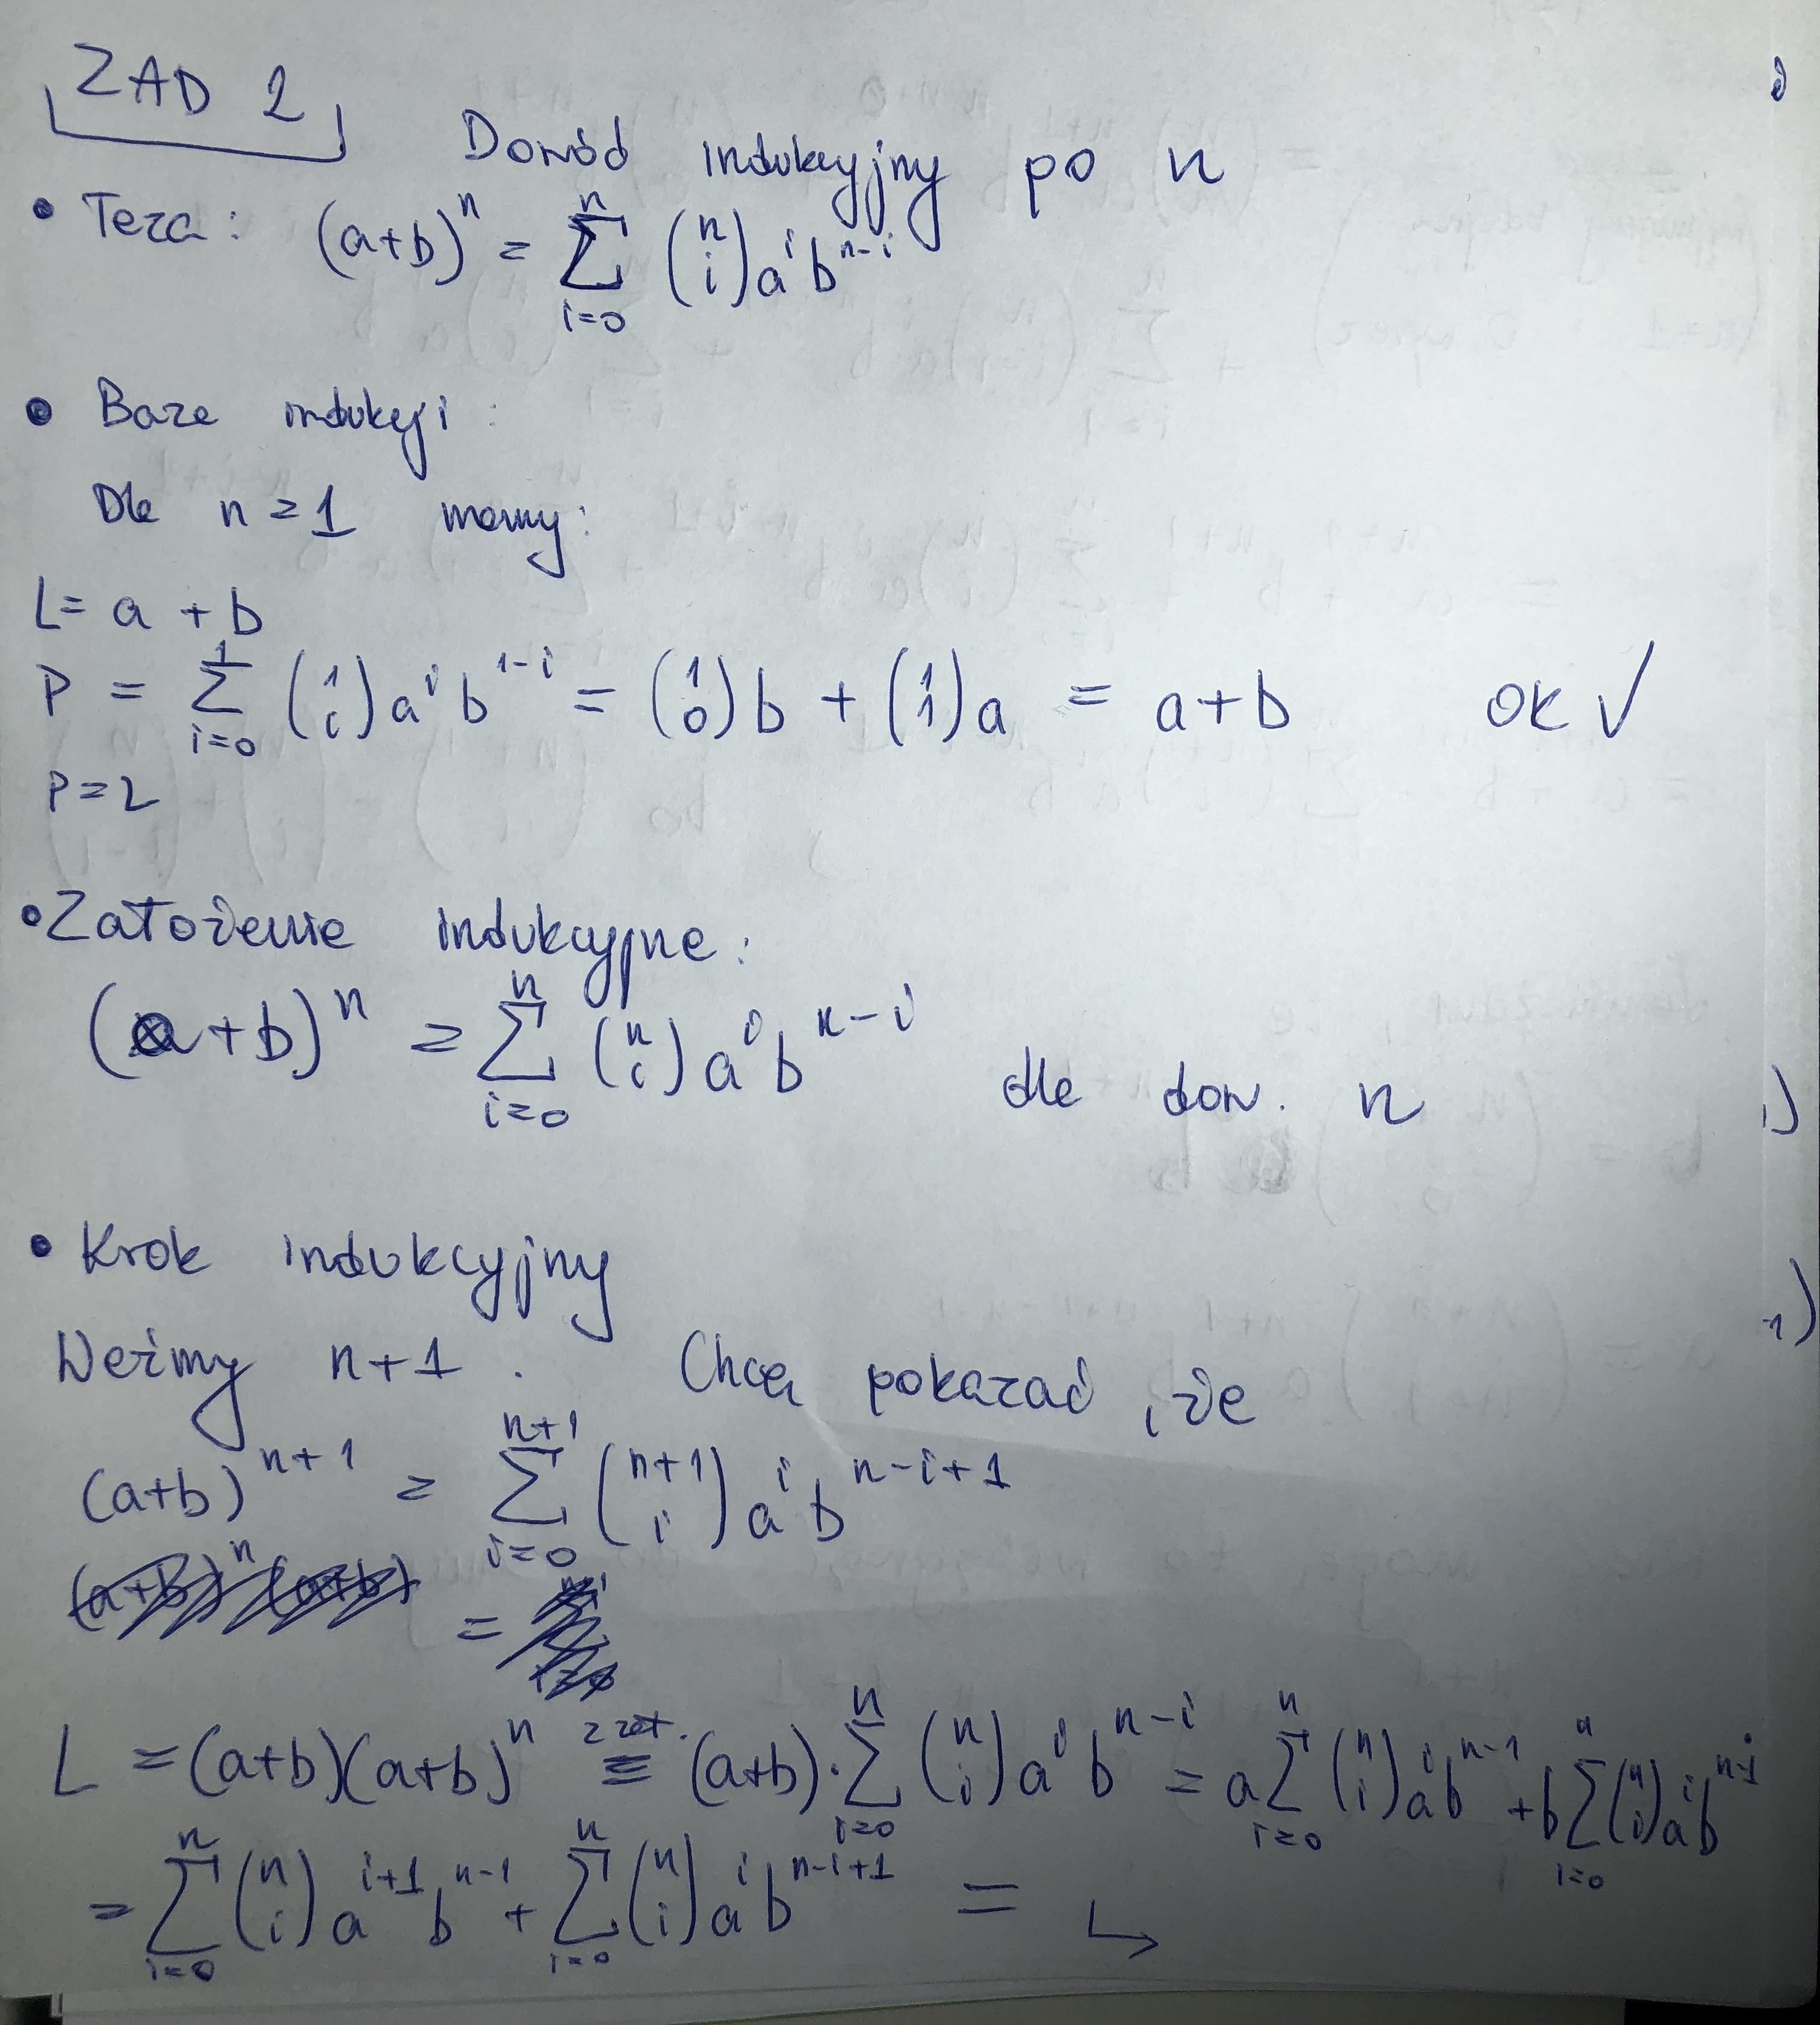 ZAD 2
Dowód indukcyjny po n
• Teza: (a+b)^n = ∑_{i=0}^{n} (n i) a^i b^{n-i}
• Baza indukcji:
Dla n=1 mamy:
L= a + b
P = ∑_{i=0}^{1} (1 i) a^i b^{1-i} = (1 0) b + (1 1) a = a+b OK ✓
P=L
• Założenie indukcyjne:
(a+b)^n = ∑_{i=0}^{n} (n i) a^i b^{n-i} dla dow. n
• Krok indukcyjny
Weźmy n+1. Chcę pokazać, że
(a+b)^{n+1} = ∑_{i=0}^{n+1} (n+1 i) a^i b^{n-i+1}
=
L = (a+b)(a+b)^n = z zał. (a+b)·∑_{i=0}^{n} (n i) a^i b^{n-i} = a∑_{i=0}^{n} (n i) a^i b^{n-1} + b∑_{i=0}^{n} (n i) a^i b^{n-i}
= ∑_{i=0}^{n} (n i) a^{i+1} b^{n-1} + ∑_{i=0}^{n} (n i) a^i b^{n-i+1} = ↳